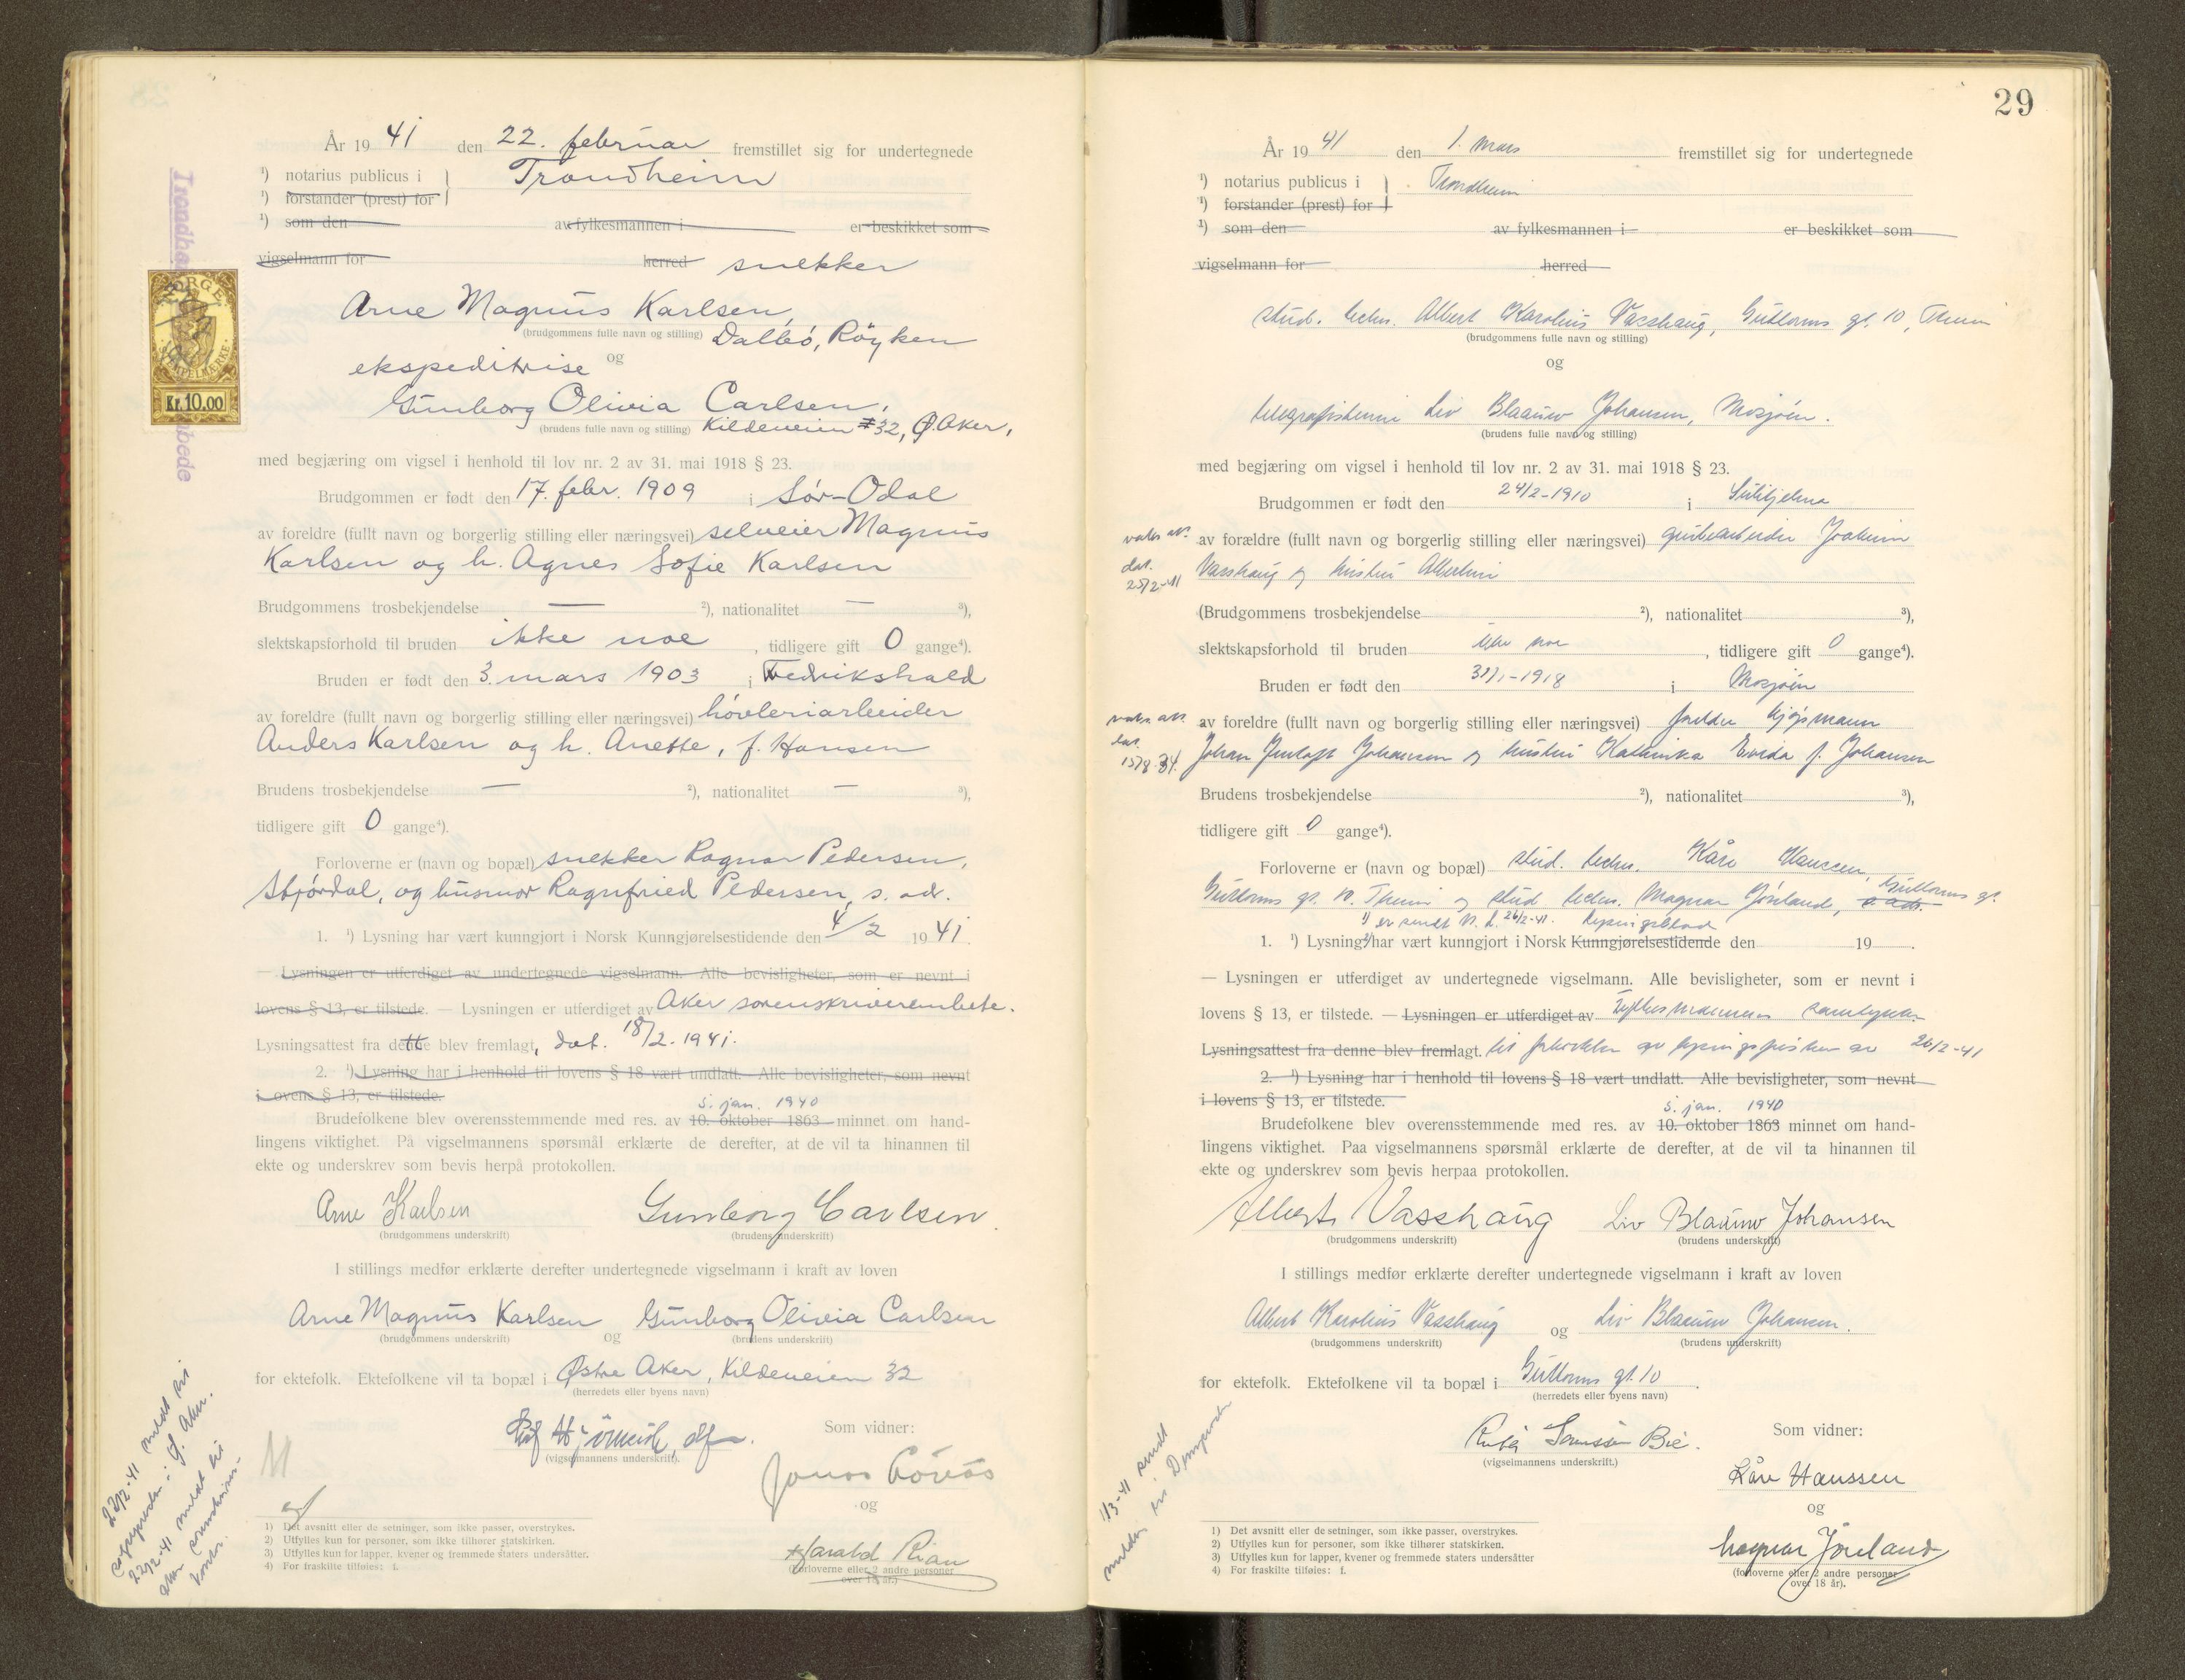 År 1941 den 22. februar fremstillet sig for undertegnede
¹) notarius publicus i Trondheim
¹) forstander (prest) for
¹) som den av fylkesmannen i er beskikket som
vigselmann for herred snekker
Arne Magnus Karlsen,
(brudgommens fulle navn og stilling) Dalbo, Röyken
ekspeditrise og
Gunborg Olivia Carlsen,
(brudens fulle navn og stilling) Kildeveien #32, Ø. Aker,
med begjæring om vigsel i henhold til lov nr. 2 av 31. mai 1918 § 23.
Brudgommen er født den 17. febr. 1909 i Sór-Odal
av foreldre (fullt navn og borgerlig stilling eller næringsvei) selveier Magnus
Karlsen og h. Agnes Sofie Karlsen
Brudgommens trosbekjendelse — ²), nationalitet — ³),
slektskapsforhold til bruden ikke noe, tidligere gift 0 gange⁴).
Bruden er født den 3. mars 1903 i Fredrikshald
av foreldre (fullt navn og borgerlig stilling eller næringsvei) hóvleriarbeider
Anders Karlsen og h. Anette, f. Hansen
Brudens trosbekjendelse — ²), nationalitet — ³),
tidligere gift 0 gange⁴).
Forloverne er (navn og bopæl) snekker Ragnar Pedersen,
Stjórdal, og husmor Ragnfried Pedersen, s. ad.
1. ¹) Lysning har vært kunngjort i Norsk Kunngjørelsestidende den 4/2 1941.
— Lysningen er utferdiget av undertegnede vigselmann. Alle bevisligheter, som er nevnt i
lovens § 13, er tilstede. — Lysningen er utferdiget av Aker sorenskriverembete.
Lysningsattest fra dette blev fremlagt, dat. 18/2. 1941.
2. ¹) Lysning har i henhold til lovens § 18 vært undlatt. Alle bevisligheter, som nevnt
i lovens § 13, er tilstede.
5. jan. 1940
Brudefolkene blev overensstemmende med res. av 10. oktober 1863 minnet om hand-
lingens viktighet. På vigselmannens spørsmål erklærte de derefter, at de vil ta hinannen til
ekte og underskrev som bevis herpå protokollen.
Arne Karlsen Gunborg Carlsen.
(brudgommens underskrift) (brudens underskrift)
I stillings medfør erklærte derefter undertegnede vigselmann i kraft av loven
Arne Magnus Karlsen og Gunborg Olivia Carlsen
(brudgommens underskrift) (brudens underskrift)
for ektefolk. Ektefolkene vil ta bopæl i Østre Aker, Kildeveien 32
(herredets eller byens navn)
Som vidner:
(vigselmannens underskrift).
Jonas
og
Harald Rian
(forloverne eller 2 andre personer
over 18 år.)
1) Det avsnitt eller de setninger, som ikke passer, overstrykes.
2) Utfylles kun for personer, som ikke tilhører statskirken.
3) Utfylles kun for lapper, kvener og fremmede staters undersåtter.
4) For fraskilte tilføies: f.
22/2-41 meldt til
i Ø. Aker.
22/2-41 meldt til
Aker sorenskriver-
kontor.
NORGE
STEMPELMERKE
Kr. 10.00
29
År 1941 den 1. mars fremstillet sig for undertegnede
¹) notarius publicus i Trondheim
¹) forstander (prest) for
¹) som den av fylkesmannen i er beskikket som
vigselmann for herred
stud. techn. Albert Karolius Vasshaug, Guttorms gt. 10, Theim
(brudgommens fulle navn og stilling)
og
telegrafistinne Liv Blaauw Johansen, Mosjóen.
(brudens fulle navn og stilling)
med begjæring om vigsel i henhold til lov nr. 2 av 31. mai 1918 § 23.
Brudgommen er født den 24/2-1910 i Sulitjelma
av forældre (fullt navn og borgerlig stilling eller næringsvei) grubearbeider Joakim
Vasshaug og hustru Albertine
vaks. att.
dat.
25/2-41
(Brudgommens trosbekjendelse ²), nationalitet ³),
slektskapsforhold til bruden ikke noe, tidligere gift 0 gange⁴).
Bruden er født den 31/1-1918 i Mosjóen
av foreldre (fullt navn og borgerlig stilling eller næringsvei) forelder kjøpmann
Johan Johansen og hustru Kathinka f. Johansen
vaks. att.
dat.
15/8-34.
Brudens trosbekjendelse ²), nationalitet ³),
tidligere gift 0 gange⁴).
Forloverne er (navn og bopæl) stud. techn. Kåre Hanssen,
Guttorms gt. 10. Theim og stud techn. Magnar Jóreland, s. ads. Guttorms gt.
¹) er sendt N. L. 26/2-41. lysingsblad
1. ¹) Lysning har vært kunngjort i Norsk Kunngjørelsestidende den 19 .
— Lysningen er utferdiget av undertegnede vigselmann. Alle bevisligheter, som er nevnt i
lovens § 13, er tilstede. — Lysningen er utferdiget av Fylkesmannens samtykke
Lysningsattest fra denne blev fremlagt. til av lysingsfristen av 26/2-41
2. ¹) Lysning har i henhold til lovens § 18 vært undlatt. Alle bevisligheter, som nevnt
i lovens § 13, er tilstede.
5. jan. 1940
Brudefolkene blev overensstemmende med res. av 10. oktober 1863 minnet om hand-
lingens viktighet. Paa vigselmannens spørsmål erklærte de derefter, at de vil ta hinannen til
ekte og underskrev som bevis herpaa protokollen.
Albert Vasshaug Liv Blaauw Johansen
(brudgommens underskrift) (brudens underskrift)
I stillings medfør erklærte derefter undertegnede vigselmann i kraft av loven
Albert Karolius Vasshaug og Liv Blaauw Johansen.
(brudgommens underskrift) (brudens underskrift)
for ektefolk. Ektefolkene vil ta bopæl i Guttorms gt. 10.
(herredets eller byens navn)
Som vidner:
(vigselmannens underskrift.)
Kåre Hanssen
og
Magnar Jóreland
(forloverne eller 2 andre personer
over 18 år).
1/3-41 sendt
melding til Domprosten
1) Det avsnitt eller de setninger, som ikke passer, overstrykes.
2) Utfylles kun for personer, som ikke tilhører statskirken.
3) Utfylles kun for lapper, kvener og fremmede staters undersåtter
4) For fraskilte tilføies: f.